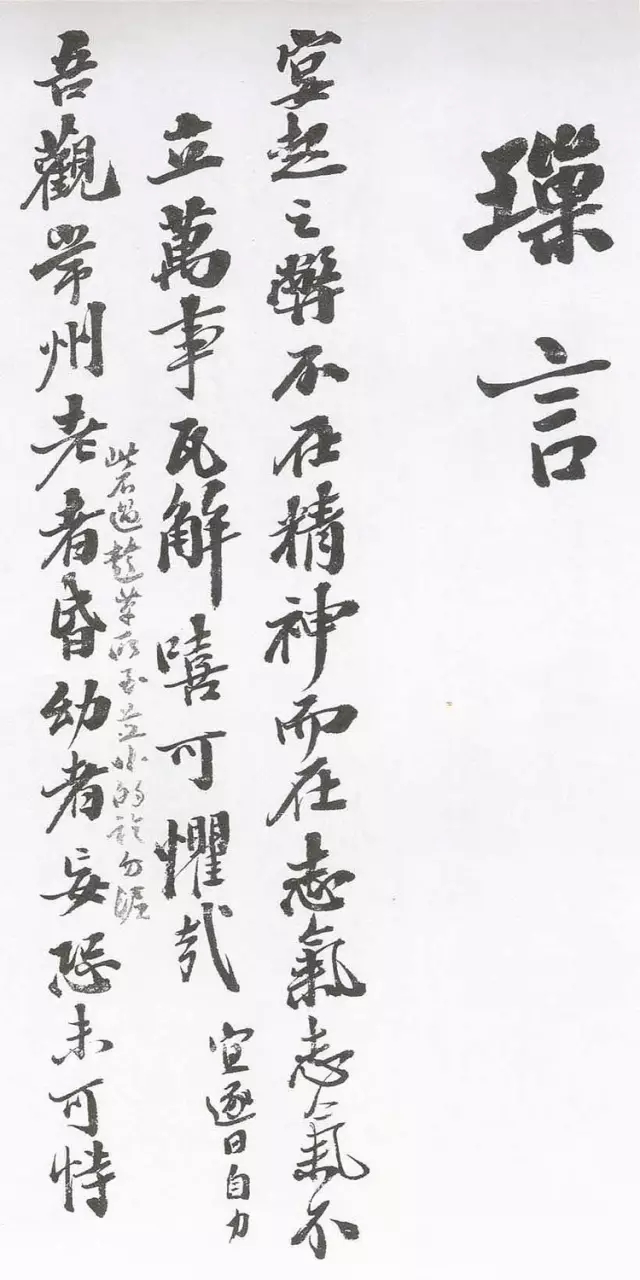 璅言
宴起之弊不在精神而在志氣志氣不
立萬事瓦解嘻可懼哉 宜逐日自力
此不過所至
吾觀常州老者昏幼者妄恐未可恃